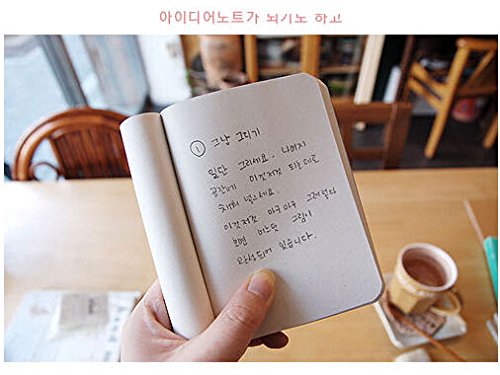 아이디어노트가 되기도 하고
① 그냥 그리기
일단 그리세요. 나머지
공간에 이것저것 되는대로
채워 넣으세요.
이것저것 마구마구 그려넣다
보면 어느덧 그림이
완성되어 있습니다.